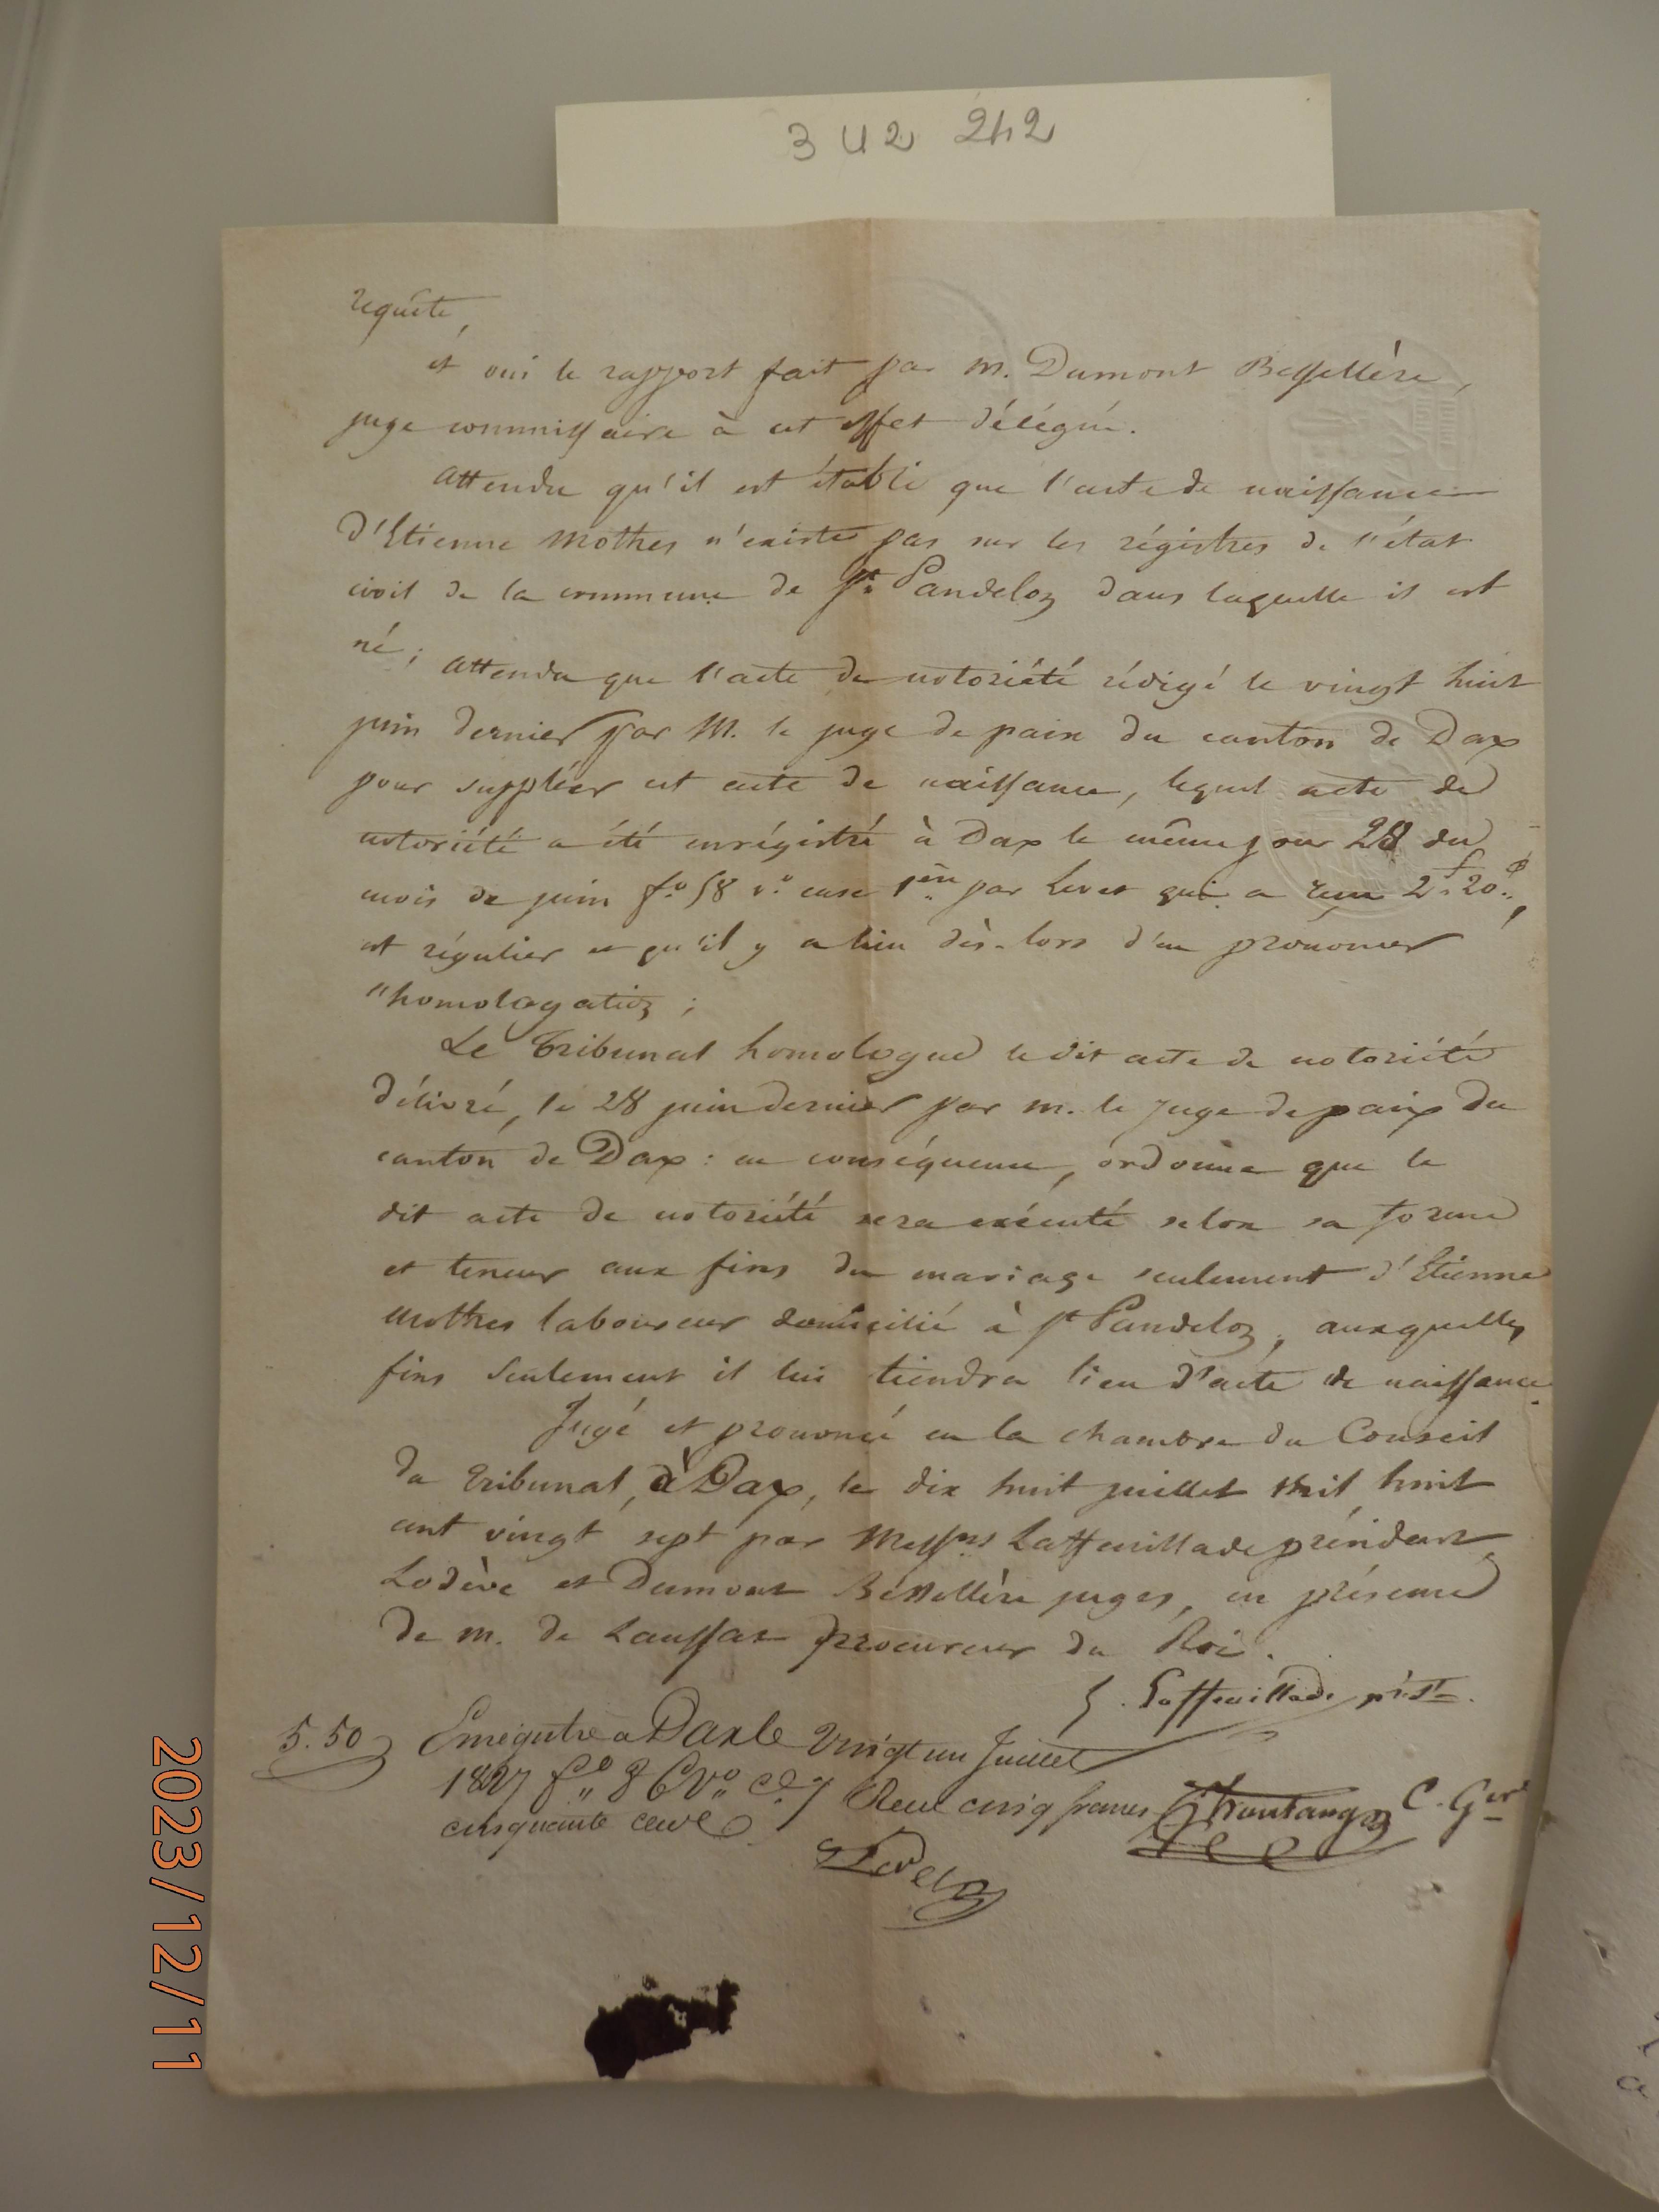 3 U2 242
requête,
et oui le rapport fait par m. Dumont Bessellère,
juge commissaire à cet effet délégué.
attendu qu'il est établi que l'acte de naissance
d'Etienne Mothes n'existe pas sur les régistres de l'état
civil de la commune de St. Pandelon dans laquelle il est
né; attendu que l'acte de notoriété rédigé le vingt huit
juin dernier par M. le juge de paix du canton de Dax
pour suppléer cet acte de naissance, lequel acte de
notoriété a été enrégistré à Dax le même jour 28 du
mois de juin fo. 58 vo. case 1ère par Levet qui a reçu 2f. 20c.,
est régulier et qu'il y a lieu dès-lors d'en prononcer
l'homologation;
Le Tribunal homologue le dit acte de notoriété
délivré, le 28 juin dernier par m. le Juge de paix du
canton de Dax: en conséquence, ordonne que le
dit acte de notoriété sera exécuté selon sa forme
et teneur aux fins du mariage seulement d'Etienne
Mothes laboureur domicilié à St Pandelon, auxquelles
fins seulement il lui tiendra lieu d'acte de naissance.
Jugé et prononcé en la chambre du Conseil
du tribunal, à Dax, le dix huit juillet mil huit
cent vingt sept par Messrs Laffeuillade président,
Lodève et Dumont Bessellère juges, en présence
de m. de Laussat procureur du Roi.
Laffeuillade prést.
5.50 Enregistré a Dax le Vingt un Juillet
1827 fo. 86 Vo. Ce. 7 Reçu cinq francs
cinquante cent
C. Gier
Levet
2023/12/11